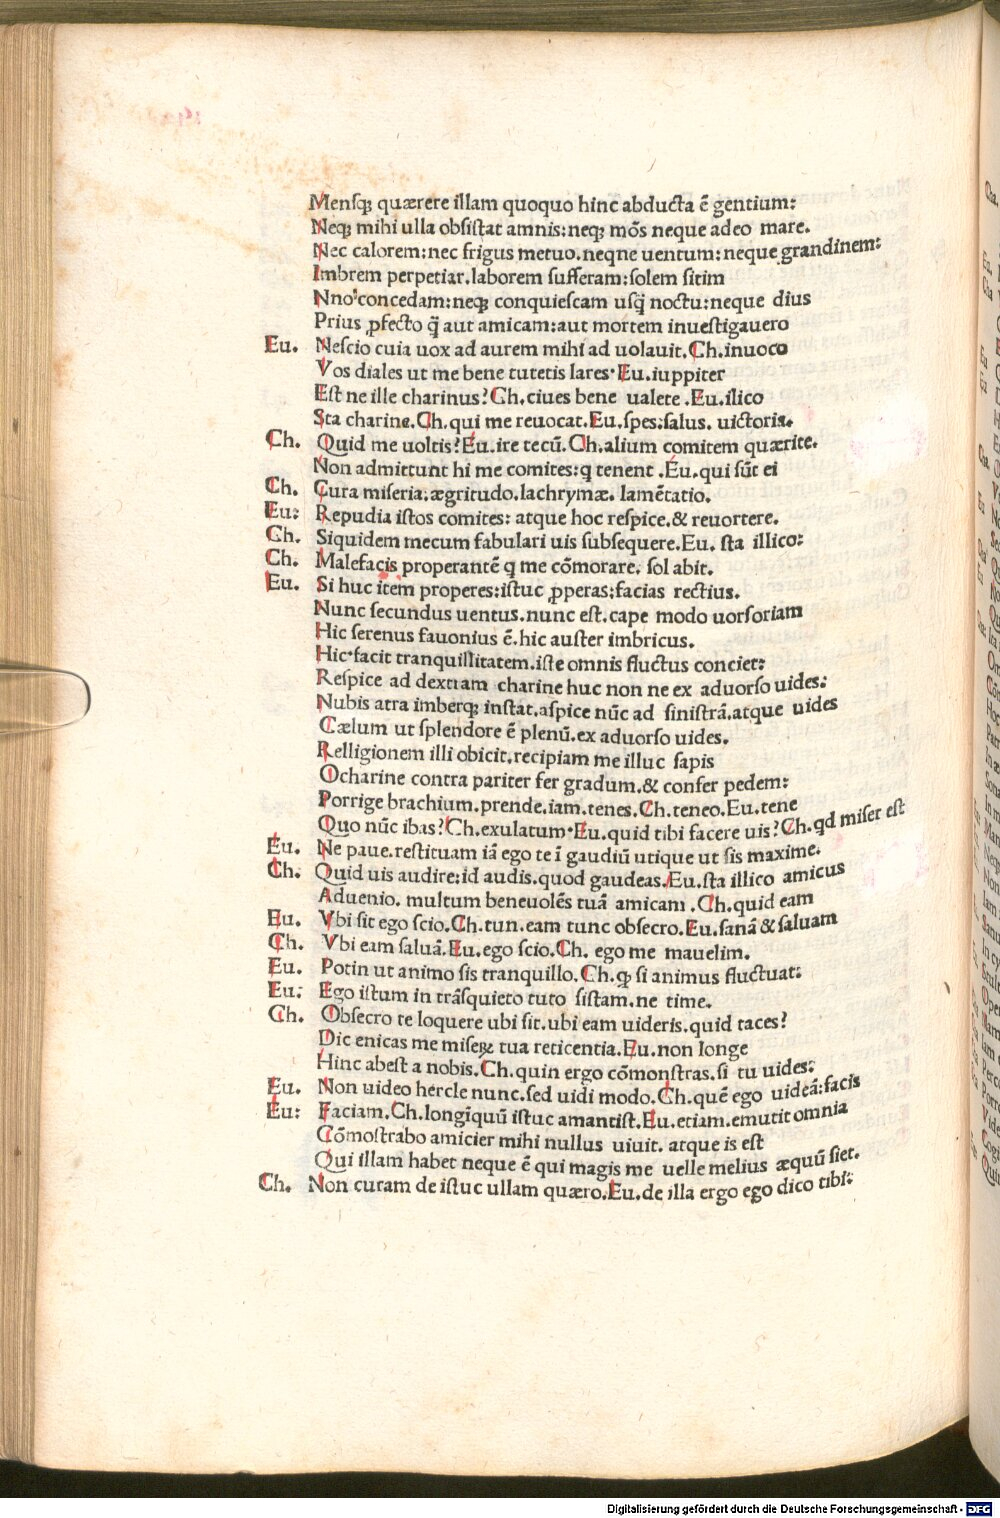 Menſqꝫ quærere illam quoquo hinc abducta ē gentium:
Neqꝫ mihi ulla obſiſtat amnis:neqꝫ mōs neque adeo mare.
Nec calorem:nec frigus metuo.neqne uentum:neque grandinem:
Imbrem perpetiar.laborem ſufferam:ſolem ſitim
Nno'concedam:neqꝫ conquieſcam uſq̄ noctu:neque dius
Prius ꝓfecto q̄ aut amicam:aut mortem inueſtigauero
Eu. Neſcio cuia uox ad aurem mihi ad uolauit.Ch.inuoco
Vos diales ut me bene tutetis lares·Eu.iuppiter
Eſt ne ille charinus?Ch.ciues bene ualete .Eu.ilico
Sta charine.Ch.qui me reuocat.Eu.ſpes:ſalus. uictoria.
Ch. Quid me uoltis?Eu.ire tecū.Ch.alium comitem quærite.
Non admittunt hi me comites:q tenent .Eu.qui sūt ei
Ch. Cura miſeria:ægritudo.lachrymæ. lamētatio.
Eu: Repudia iſtos comites: atque hoc reſpice.& reuortere.
Ch. Siquidem mecum fabulari uis ſubſequere.Eu. ſta illico:
Ch. Malefacis properantē q me cōmorare. ſol abit.
Eu. Si huc item properes:iſtuc ꝓperas:facias rectius.
Nunc ſecundus uentus.nunc eſt.cape modo uorſoriam
Hic ſerenus fauonius ē.hic auſter imbricus.
Hic·facit tranquillitatem.iſte omnis fluctus conciet:
Reſpice ad dextram charine huc non ne ex aduorſo uides:
Nubis atra imberqꝫ inſtat.aſpice nūc ad ſiniſtrā.atque uides
Cælum ut ſplendore ē plenū.ex aduorſo uides.
Relligionem illi obicit.recipiam me illuc ſapis
Ocharine contra pariter fer gradum.& confer pedem:
Porrige brachium.prende.iam.tenes.Ch.teneo.Eu.tene
Quo nūc ibas?Ch.exulatum·Eu.quid tibi facere uis?Ch.qd miſer eſt
Eu. Ne paue.reſtituam iā ego te ī gaudiū utique ut ſis maxime.
Ch. Quid uis audire:id audis.quod gaudeas.Eu.ſta illico amicus
Aduenio. multum beneuolēs tuā amicam .Ch.quid eam
Eu. Vbi ſit ego ſcio.Ch.tun.eam tunc obſecro.Eu.ſanā & ſaluam
Ch. Vbi eam ſaluā.Eu.ego ſcio.Ch. ego me mauelim.
Eu. Potin ut animo ſis tranquillo.Ch.qꝫ ſi animus fluctuat:
Eu: Ego iſtum in trāſquieto tuto ſiſtam.ne time.
Ch. Obſecro te loquere ubi ſit.ubi eam uideris.quid taces?
Dic enicas me miſeꝝ tua reticentia.Eu.non longe
Hinc abeſt a nobis.Ch.quin ergo cōmonſtras.ſi tu uides:
Eu. Non uideo hercle nunc.ſed uidi modo.Ch.quē ego uideā:facis
Eu: Faciam.Ch.longīquū iſtuc amantiſt.Eu.etiam.emutit omnia
Cōmoſtrabo amicier mihi nullus uiuit. atque is eſt
Qui illam habet neque ē qui magis me uelle melius æquū ſiet.
Ch. Non curam de iſtuc ullam quæro.Eu.de illa ergo ego dico tibi:
Digitalisierung gefördert durch die Deutsche Forschungsgemeinschaft - DFG